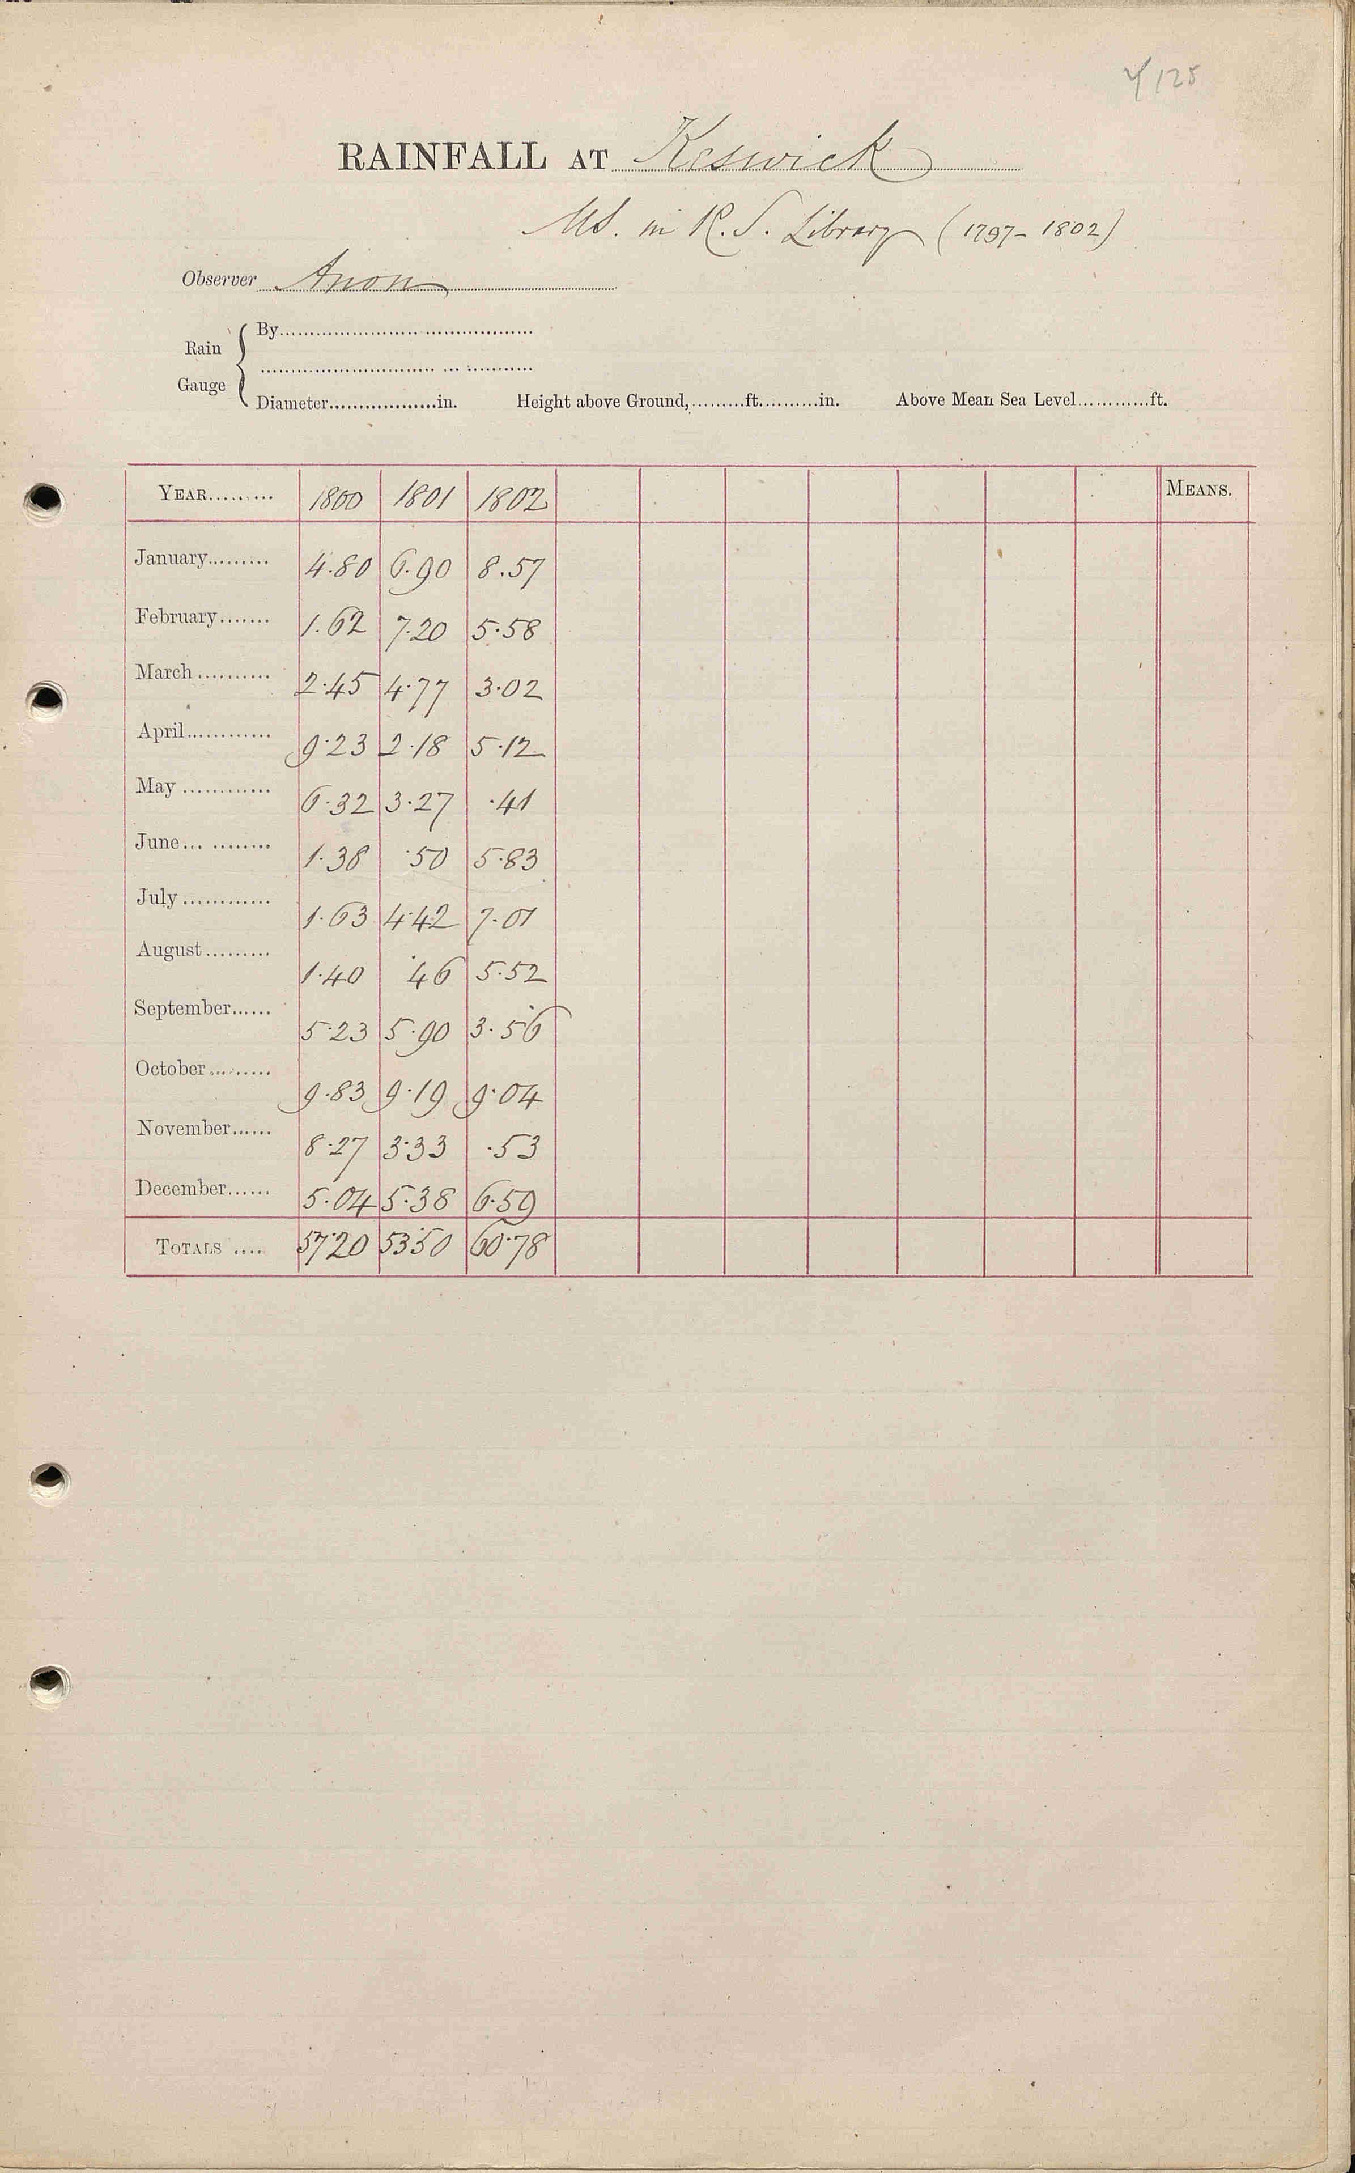 4/125
RAINFALL AT Keswick
MS. in R. S. Library (1797-1802)
Observer Anon
Rain Gauge
By
Diameter in. Height above Ground, ft. in. Above Mean Sea Level ft.
YEAR 1800 1801 1802 MEANS.
January 4.80 6.90 8.57
February 1.62 7.20 5.58
March 2.45 4.77 3.02
April 9.23 2.18 5.12
May 6.32 3.27 .41
June 1.38 .50 5.83
July 1.63 4.42 7.01
August 1.40 .46 5.52
September 5.23 5.90 3.56
October 9.83 9.19 9.04
November 8.27 3.33 .53
December 5.04 5.38 6.59
TOTALS 57.20 53.50 60.78